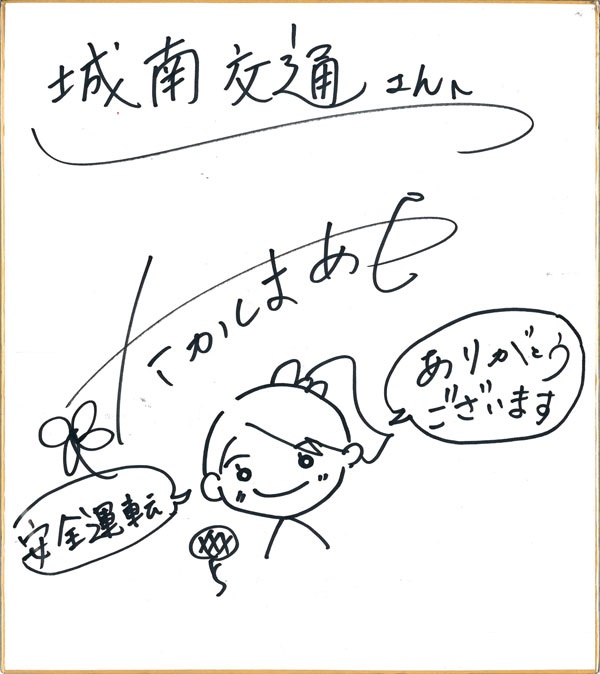 城南交通さんへ
たかしまあや
ありがとう
ございます
安全運転